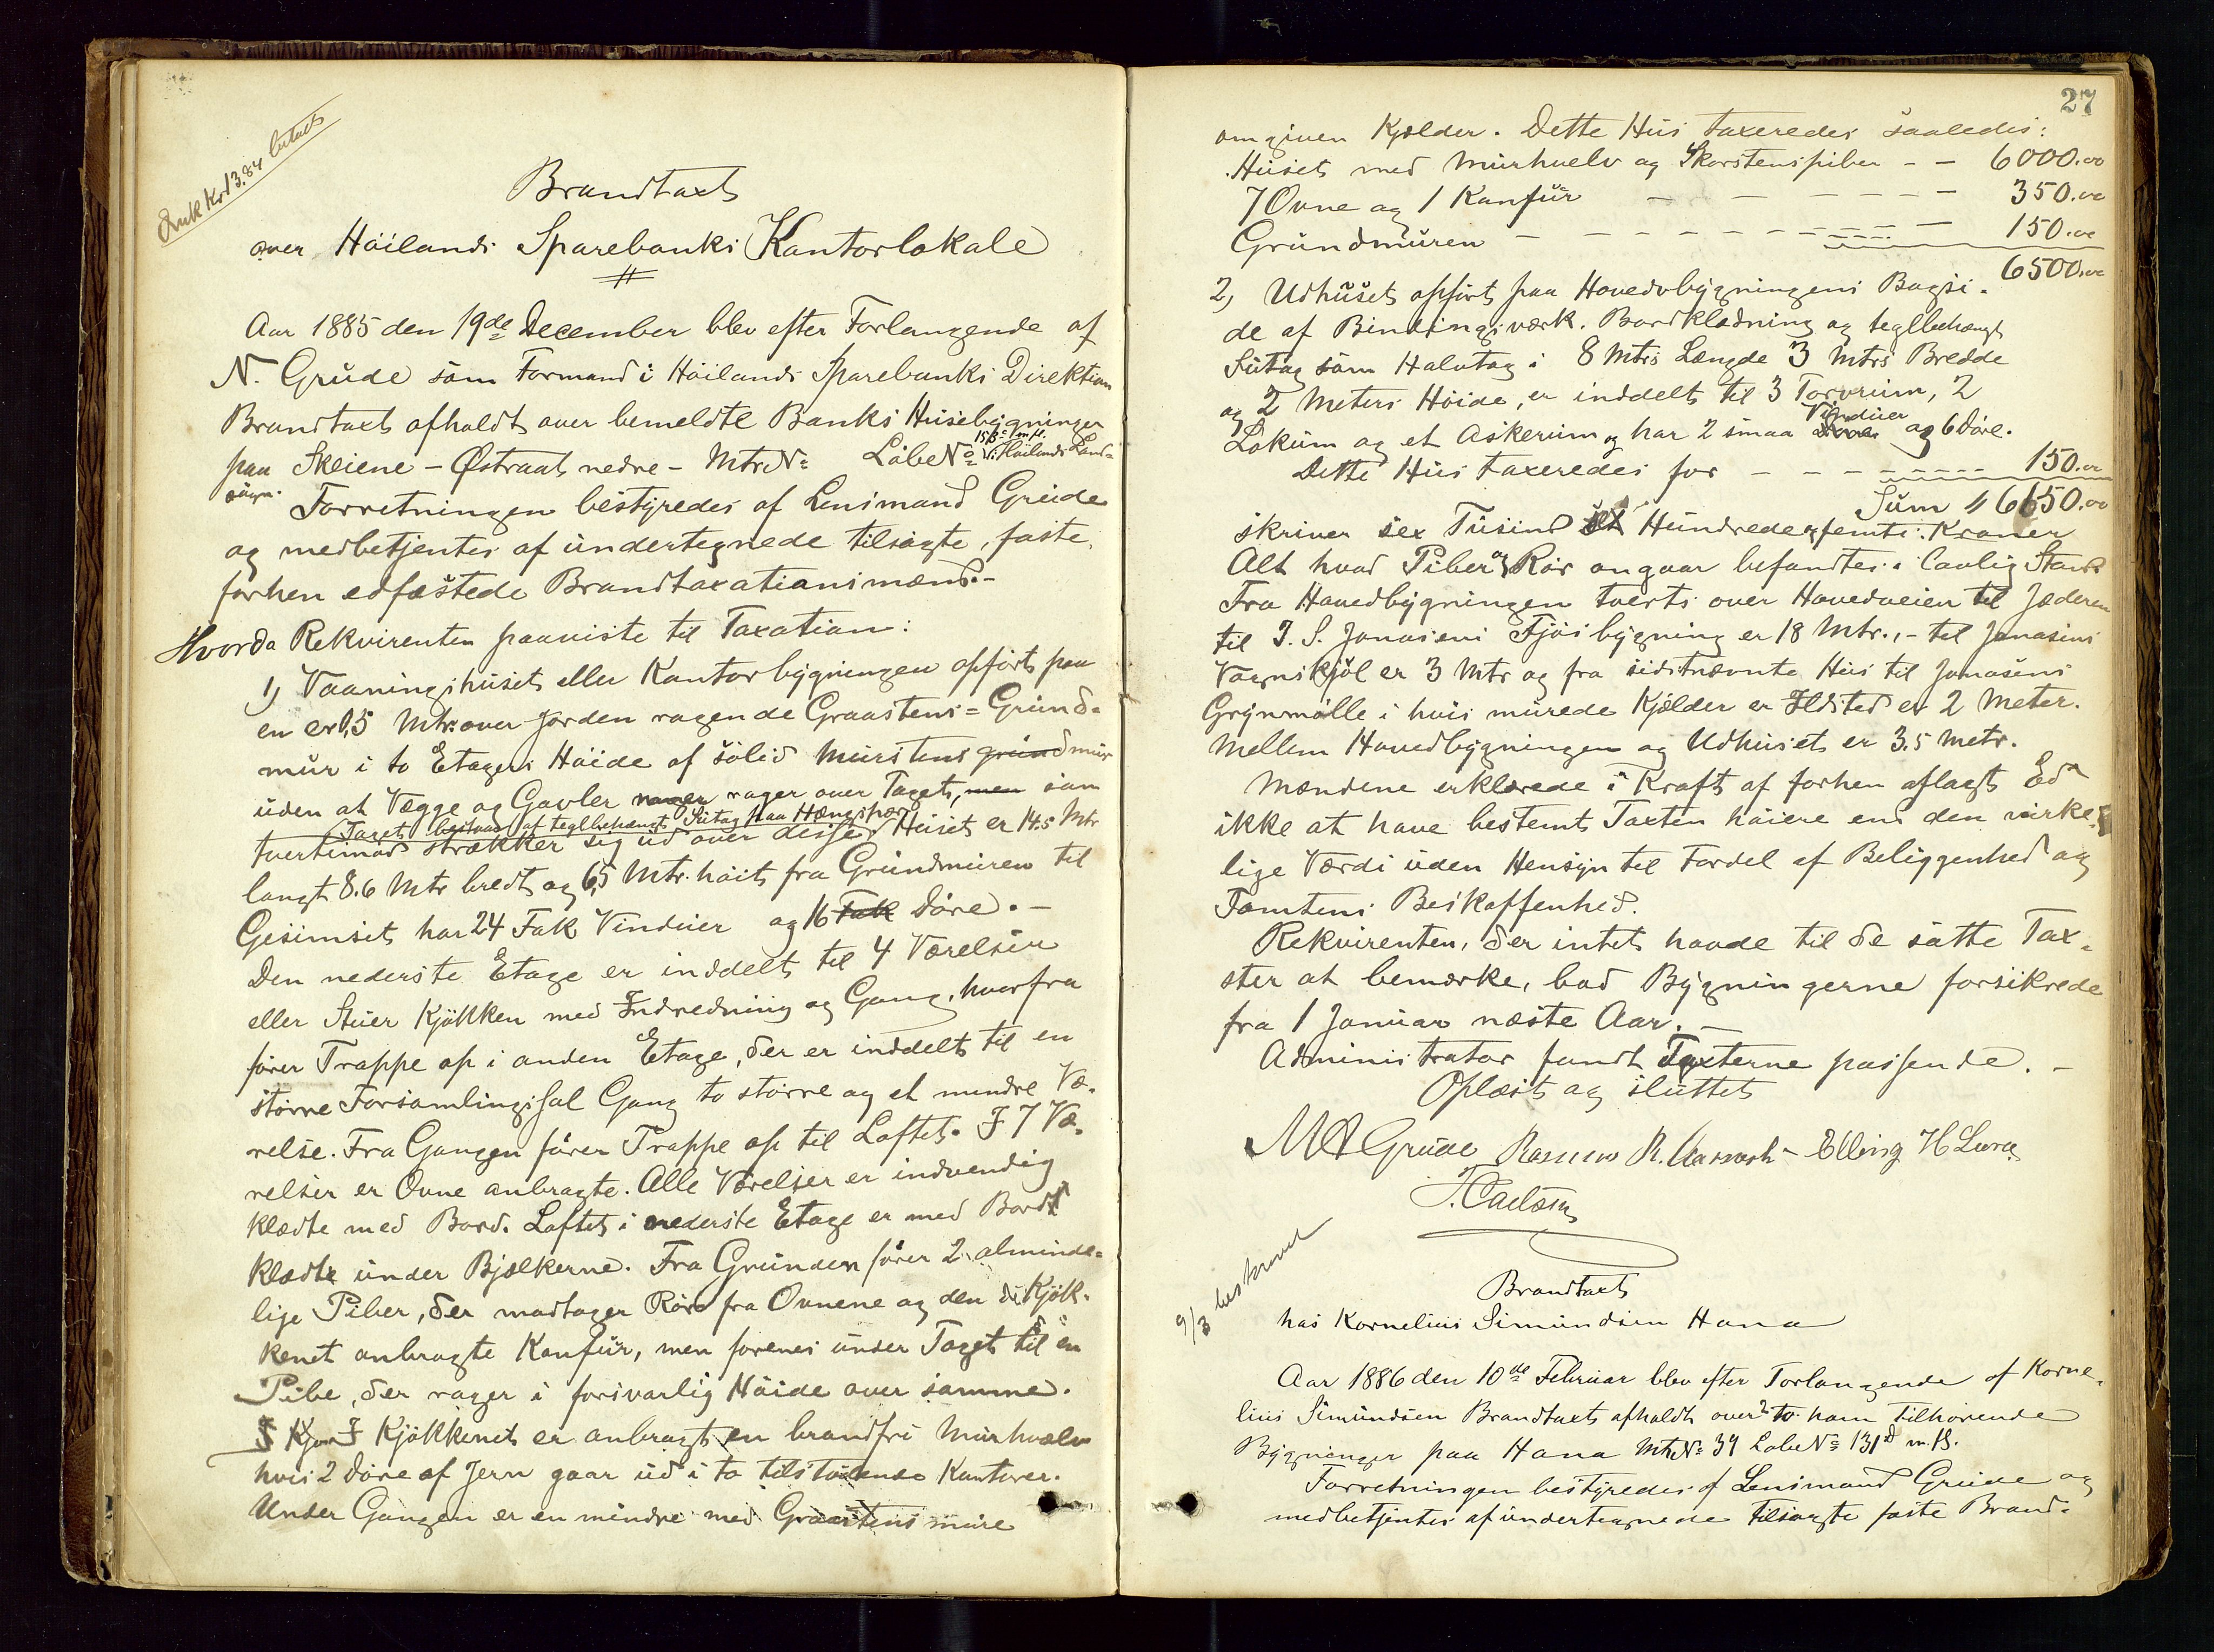 Kr 13.84 betalt
Brandtaxt
over Höilands Sparebanks Kontorlokale
Aar 1885 den 19de December blev efter Forlangende af
N. Grude som Formand i Höilands Sparebanks Direktion
Brandtaxt afholdt over bemeldte Banks Husebygninger
paa Skeiene - Østraat nedre - Mtr No Löbe No 15 Bc m fl. i Höilands Land=
sogn. Forretningen bestyredes af Lensmand Grude
og medbetjentes af undertegnede tilsagte, faste,
forhen edfæstede Brandtaxationsmænd.-
Hvorda Rekvirenten paaviste til Taxation:
1) Vaaningshuset eller Kontorbygningen opfört paa
en er 1,5 Mtr. over Jorden ragende Graastens=Grund-
mur i to Etagers Höide af solid Murstens grundmur
uden at Vægge og Gavler raver rager over Taget, men som
Taget bestaar af teglbehængt Sutag paa Hængspær
tvertimod strækker sig ud over disse Huset er 14.5 Mtr
langt 8.6 Mtr bredt og 6,5 Mtr. höit fra Grundmuren til
Gesimset har 24 Fak Vinduer og 16 Fak Döre. -
Den nederste Etage er inddelt til 4 Værelser
eller Stuer Kjökken med Indredning og Gang, hvorfra
förer Trappe op i anden Etage, der er inddelt til en
större Forsamlingssal Gang to större og et mindre Væ-
relse. Fra Gangen förer Trappe op til Loftet. I 7 Væ-
relser er Ovne anbragte. Alle Værelser er indvendig
klædte med Bord. Loftet i nederste Etage er med Bord
klædte under Bjælkerne. Fra Grunden förer 2 alminde=
lige Piber, der modtager Rör fra Ovnene og den i Kjök-
kenet anbragte Komfur, men forenes under Taget til en
Pibe, der rager i forsvarlig Höide over samme.
I Kjör I Kjökkenet er anbragt en brandfri Murhvælv
hvis 2 Döre af Jern gaar ud i to tilstödende Kontorer.
Under Gangen er en mindre med Graastens mure
27
omgiven Kjælder. Dette Hus taxeredes saaledes:
Huset med Murhvelv og Skorstenspiber - - 6000.00
7 Ovne og 1 Komfur - - - - - - 350.00
Grundmuren - - - - - - - - 150.00
6500.00
2) Udhuset opfört paa Hovedbygningens Bagsi-
de af Bindingsværk. Bordklædning og teglbehængt
Sutag som Halvtag i 8 Mtrs Længde 3 Mtrs Bredde
og 2 Meters Höide, er inddelt til 3 Torvrum, 2
Lokum og et Askerum og har 2 smaa Vinduer og 6 Döre.
Dette Hus taxeredes for - - - - - 150.00
Sum 6650.00
skriver sex Tusind sex Hundrede og femti Kroner
Alt hvad Piber og Rör angaar befandtes i lovlig Stand
Fra Hovedbygningen tverts over Hovedveien til Jæderen
til J. S. Jonasens Fjösbygning er 18 Mtr., - til Jonasens
Vognskjöl er 3 Mtr og fra sidstnævnte Hus til Jonasens
Grynmölle i hvis murede Kjælder er Ildsted er 2 Meter.
Mellem Hovedbygningen og Udhuset er 3.5 Metr.
Mændene erklærede i Kraft af forhen aflagt Ed
ikke at have bestemt Taxten höiere end den virke-
lige Værdi uden Hensyn til Fordel af Beliggenhed og
Tomtens Beskaffenhed.
Rekvirenten, der intet havde til de satte Tax-
ster at bemærke, bad Bygningerne forsikrede
fra 1 Januar næste Aar. -
Administrator fandt Taxterne passende. -
Oplæst og sluttet
M A Grude Rasmus R. Elling H Lura
9/3 beskrevet
Brandtaxt
hos Kornelius Simundsen Hana
Aar 1886 den 10de Februar blev efter Forlangende af Korne-
lius Simundsen Brandtaxt afholdt over to ham tilhörende
Bygninger paa Hana Mtr No 39 Löbe No 131d m. B.
Forretningen bestyredes af Lensmand Grude og
medbetjentes af undertegnede tilsagte faste Brand-